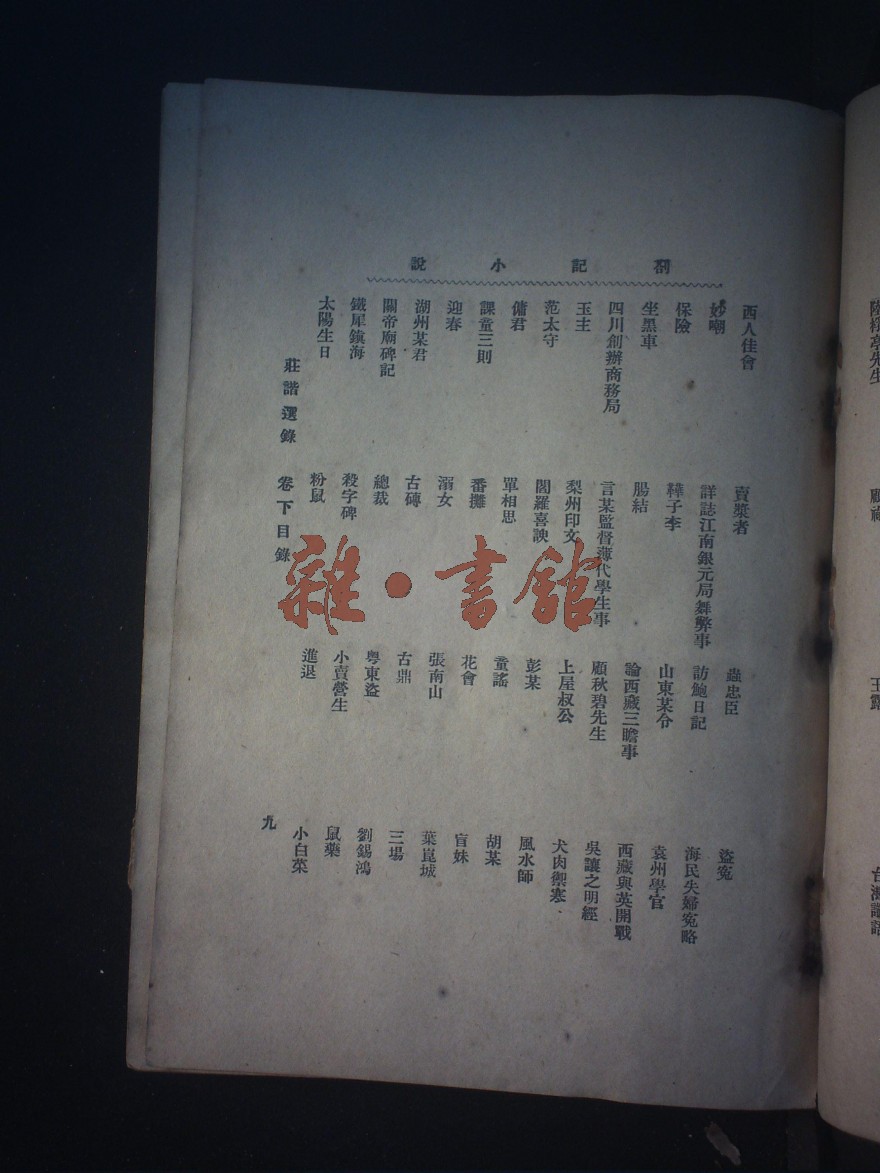 劄記小說
西人佳會 賣漿者 忠臣 盜寃
妙嘲 詳誌江南銀元局舞弊事 訪鮑日記 海民失婦寃略
保險 鞾子李 山東某令 袁州學官
坐黑車 腸結 論西藏三瞻事 西藏與英開戰
四川創辦商務局 言某監督薄代學生事 顧秋碧先生 吳讓之明經
玉主 梨州印文 上屋叔公 犬肉禦寒
范太守 閻羅喜諛 彭某 風水師
傭君 單相思 童謠 胡某
課童三則 番攤 花會 盲妹
迎春 溺女 張南山 葉崑城
湖州某君 古磚 古鼎 三場
關帝廟碑記 總裁 粵東盜 劉錫鴻
鐵犀鎮海 殺字碑 小賣營生 鼠藥
太陽生日 粉鼠 進退 小白菜
莊諧選錄 卷下目錄 九
雜·書館